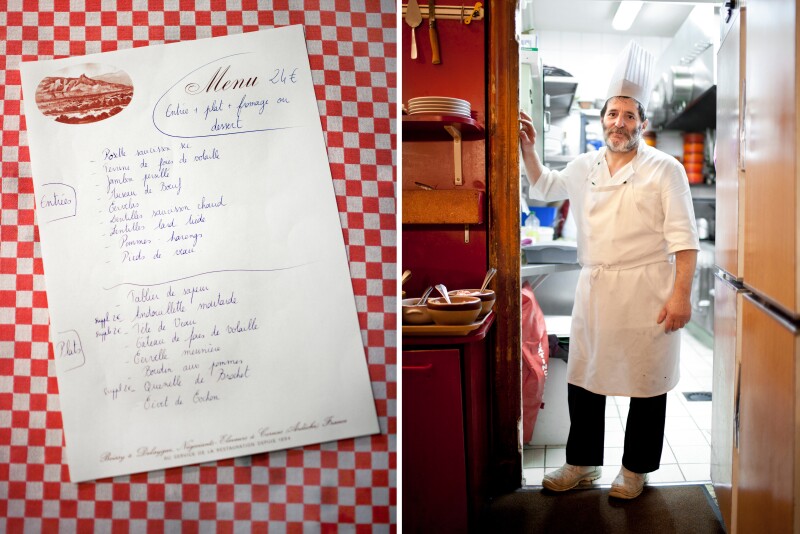 Menu 24€
Entrée + plat + fromage ou
dessert
Entrées
- Rosette saucisson sec
- Terrine de foies de volaille
- Jambon persillé
- Museau de Bœuf
- Cervelas
- Lentilles saucisson chaud
- Lentilles lard tiède
- Pommes - harengs
- Pieds de veau
Plats
- Tablier de sapeur
suppl 2€ - Andouillette moutarde
suppl 2€ - Tête de Veau
- Gateau de foies de volaille
- Cervelle meunière
- Boudin aux pommes
suppl 2€ - Quenelle de Brochet
- Civet de
Négociants-Eleveurs à Cornas Ardèche, France
AU SERVICE DE LA RESTAURATION DEPUIS